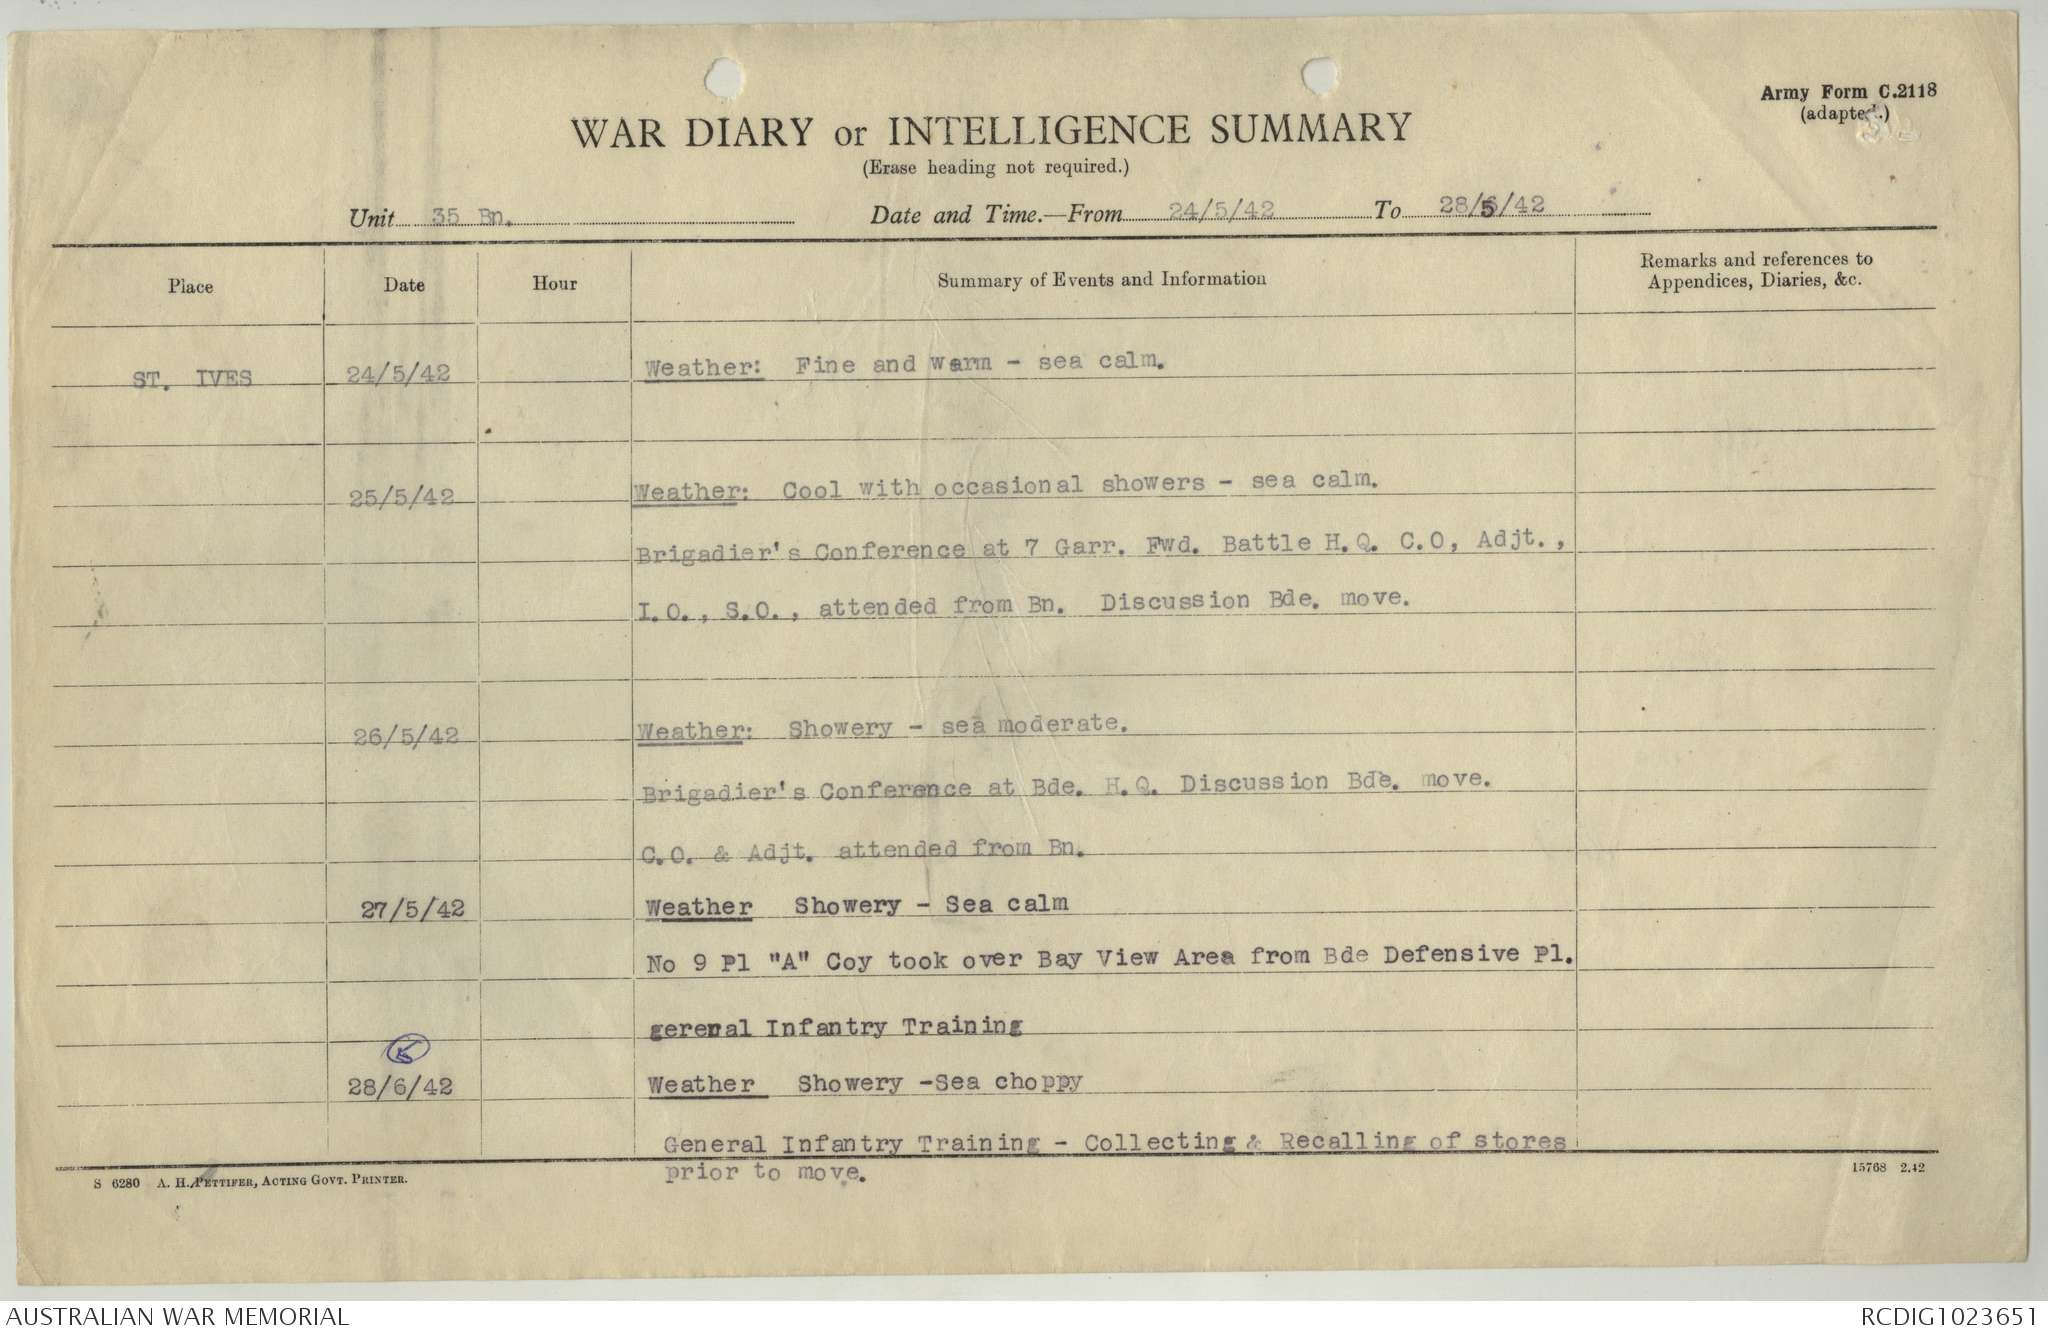 Army Form C.2118
(adapted.)
WAR DIARY or INTELLIGENCE SUMMARY
(Erase heading not required.)
Unit 35 Bn. Date and Time.—From 24/5/42 To 28/5/42
Place Date Hour Summary of Events and Information Remarks and references to Appendices, Diaries, &c.
ST. IVES 24/5/42 Weather: Fine and warm - sea calm.
25/5/42 Weather: Cool with occasional showers - sea calm.
Brigadier's Conference at 7 Garr. Fwd. Battle H.Q. C.O, Adjt.,
I.O., S.O., attended from Bn. Discussion Bde. move.
26/5/42 Weather: Showery - sea moderate.
Brigadier's Conference at Bde. H.Q. Discussion Bde. move.
C.O. & Adjt. attended from Bn.
27/5/42 Weather Showery - Sea calm
No 9 Pl "A" Coy took over Bay View Area from Bde Defensive Pl.
gerenal Infantry Training
5
28/6/42 Weather Showery -Sea choppy
General Infantry Training - Collecting & Recalling of stores
prior to move.
S 6280 A. H. PETTIFER, ACTING GOVT. PRINTER. 15768 2.42
AUSTRALIAN WAR MEMORIAL RCDIG1023651